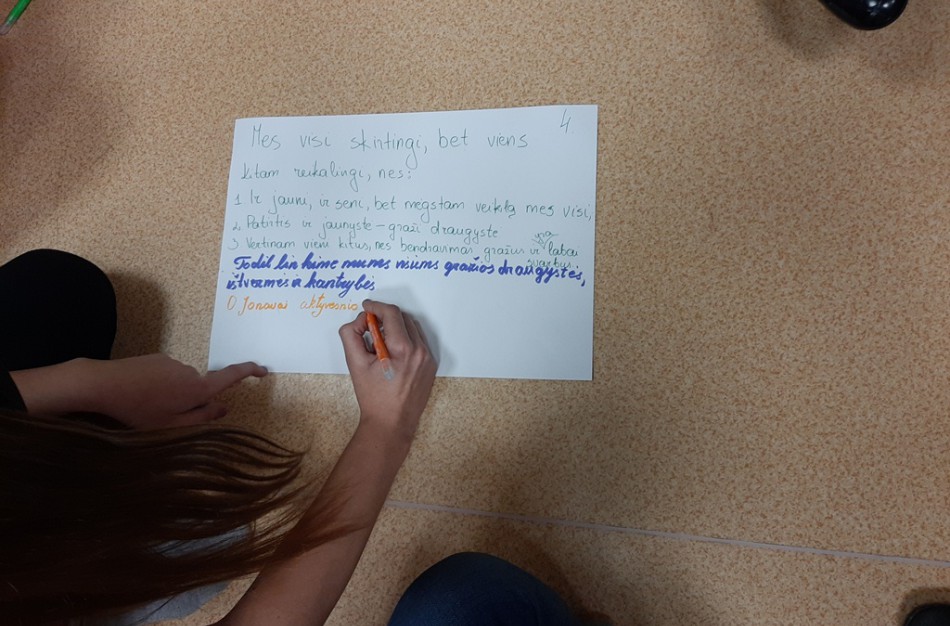 4
Mes visi skirtingi, bet viens
kitam reikalingi, nes:
1 Ir jauni, ir seni, bet mėgstam veiklą mes visi,
2 Patirtis ir jaunystė - graži draugystė
3 Vertinam vieni kitus, nes bendravimas gražus ir labai
yra
svarbus.
Todėl linkime mums visiems gražios draugystės,
ištvermės ir kantrybės
O Jonavai aktyvesnio